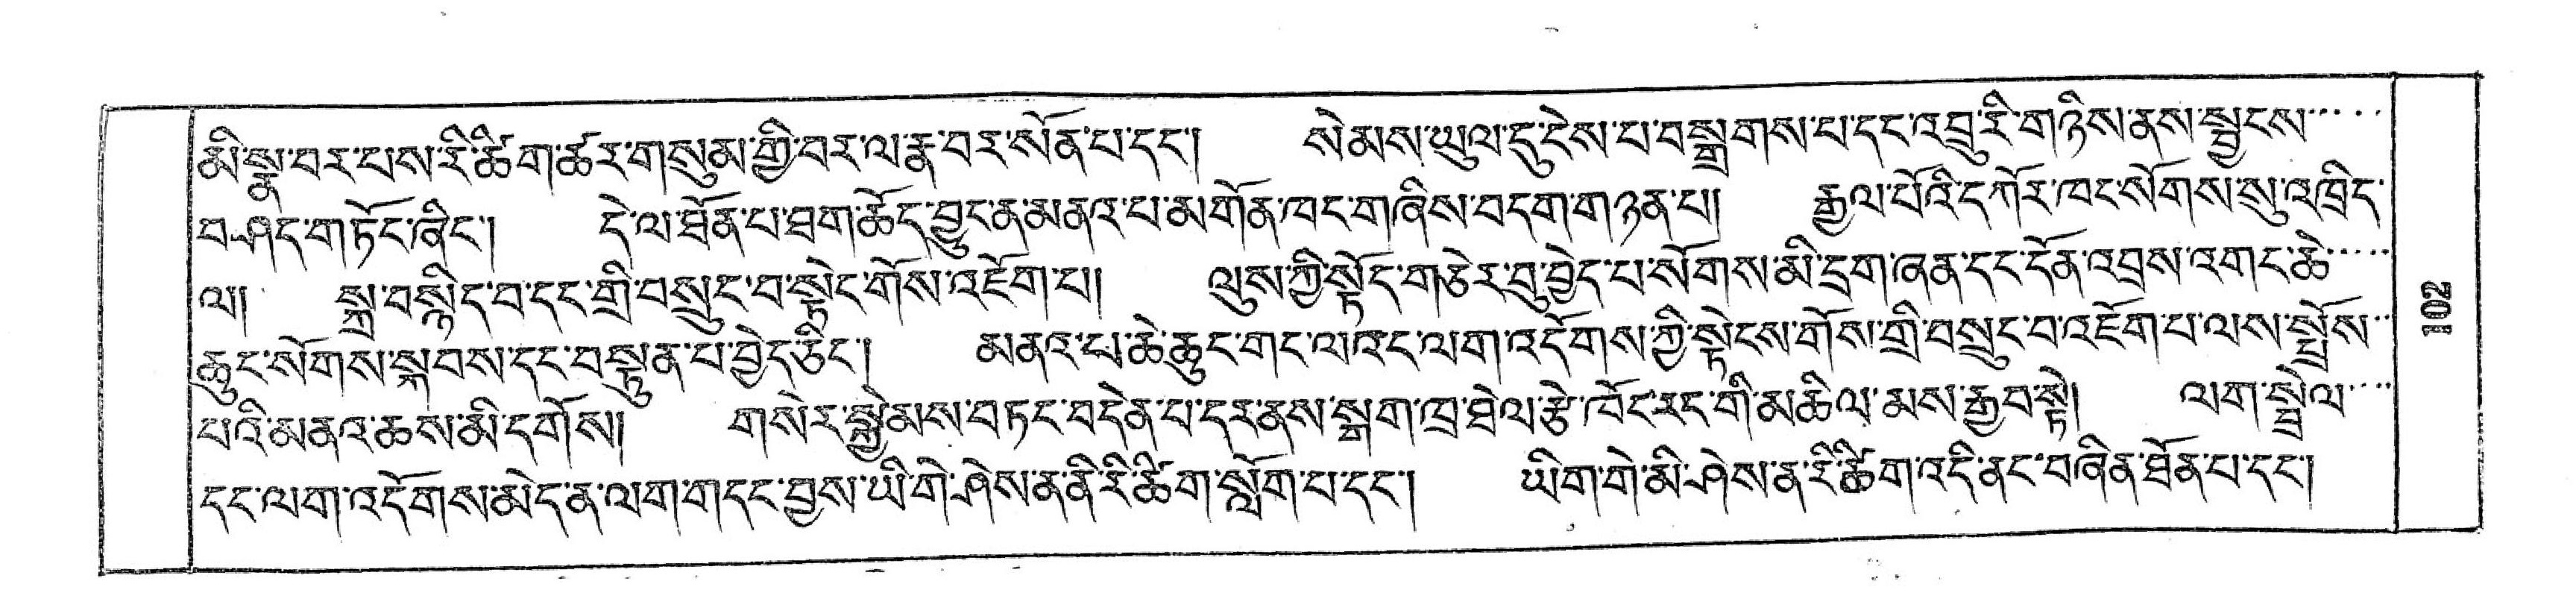 མི་སྣ་བར་པས་རི་ཚིག་ཚར་གསུམ་གྱི་བར་ལ་རྣ་བར་སོན་པ་དང་།    སེམས་ཡུལ་དུ་ངེས་པ་བསྒྲགས་པ་དང་འབྲུ་རི་གཉིས་ནས་སྦྱངས་.....
བཤད་གཏོང་ཞིང་།    དེ་ལ་ཐོན་པ་ཐག་ཆོད་བྱུང་ན་མནའ་པ་མགོན་ཁང་གཞིས་བདག་གཉན་པ།    རྒྱལ་པོའི་དཀོར་ཁང་སོགས་སུ་འཁྲིད་
ལ།    སྐྲ་བསྙིད་བ་དང་གྲི་བསྲུང་བ་སྟེང་གོས་འཇོག་པ།    ལུས་ཀྱི་སྟོད་གཅེར་བུ་བྱེད་པ་སོགས་མི་དྲག་ཞན་དང་དོན་འབྲས་འགང་ཆེ་.....
ཆུང་སོགས་སྐབས་དང་བསྟུན་པ་བྱེད་ཅིང་།    མནའ་པ་ཆེ་ཆུང་གང་ལའང་ལག་འདོགས་ཀྱི་སྟེངས་གོས་གྲི་བསྲུང་བ་འཇོག་པ་ལས་སྤྲོས་..
པའི་མནའ་ཆས་མི་དགོས།    གསེར་སྐྱེམས་བཏང་བདེན་པ་དར་ནས་སྟག་ཁྲ་ཐེལ་རྩེ་ཁོང་རང་གི་མཆིལ་མས་རྒྱབ་སྟེ།    ལག་སྦྲེལ་....
དང་ལག་འདོགས་མེད་ན་ལག་གདང་བྱས་ཡི་གེ་ཤེས་ན་ནི་རི་ཚིག་སློག་པ་དང་།    ཡིག་གེ་མི་ཤེས་ན་རི་ཚིག་འདི་ནང་བཞིན་ཐོན་པ་དང་།
102